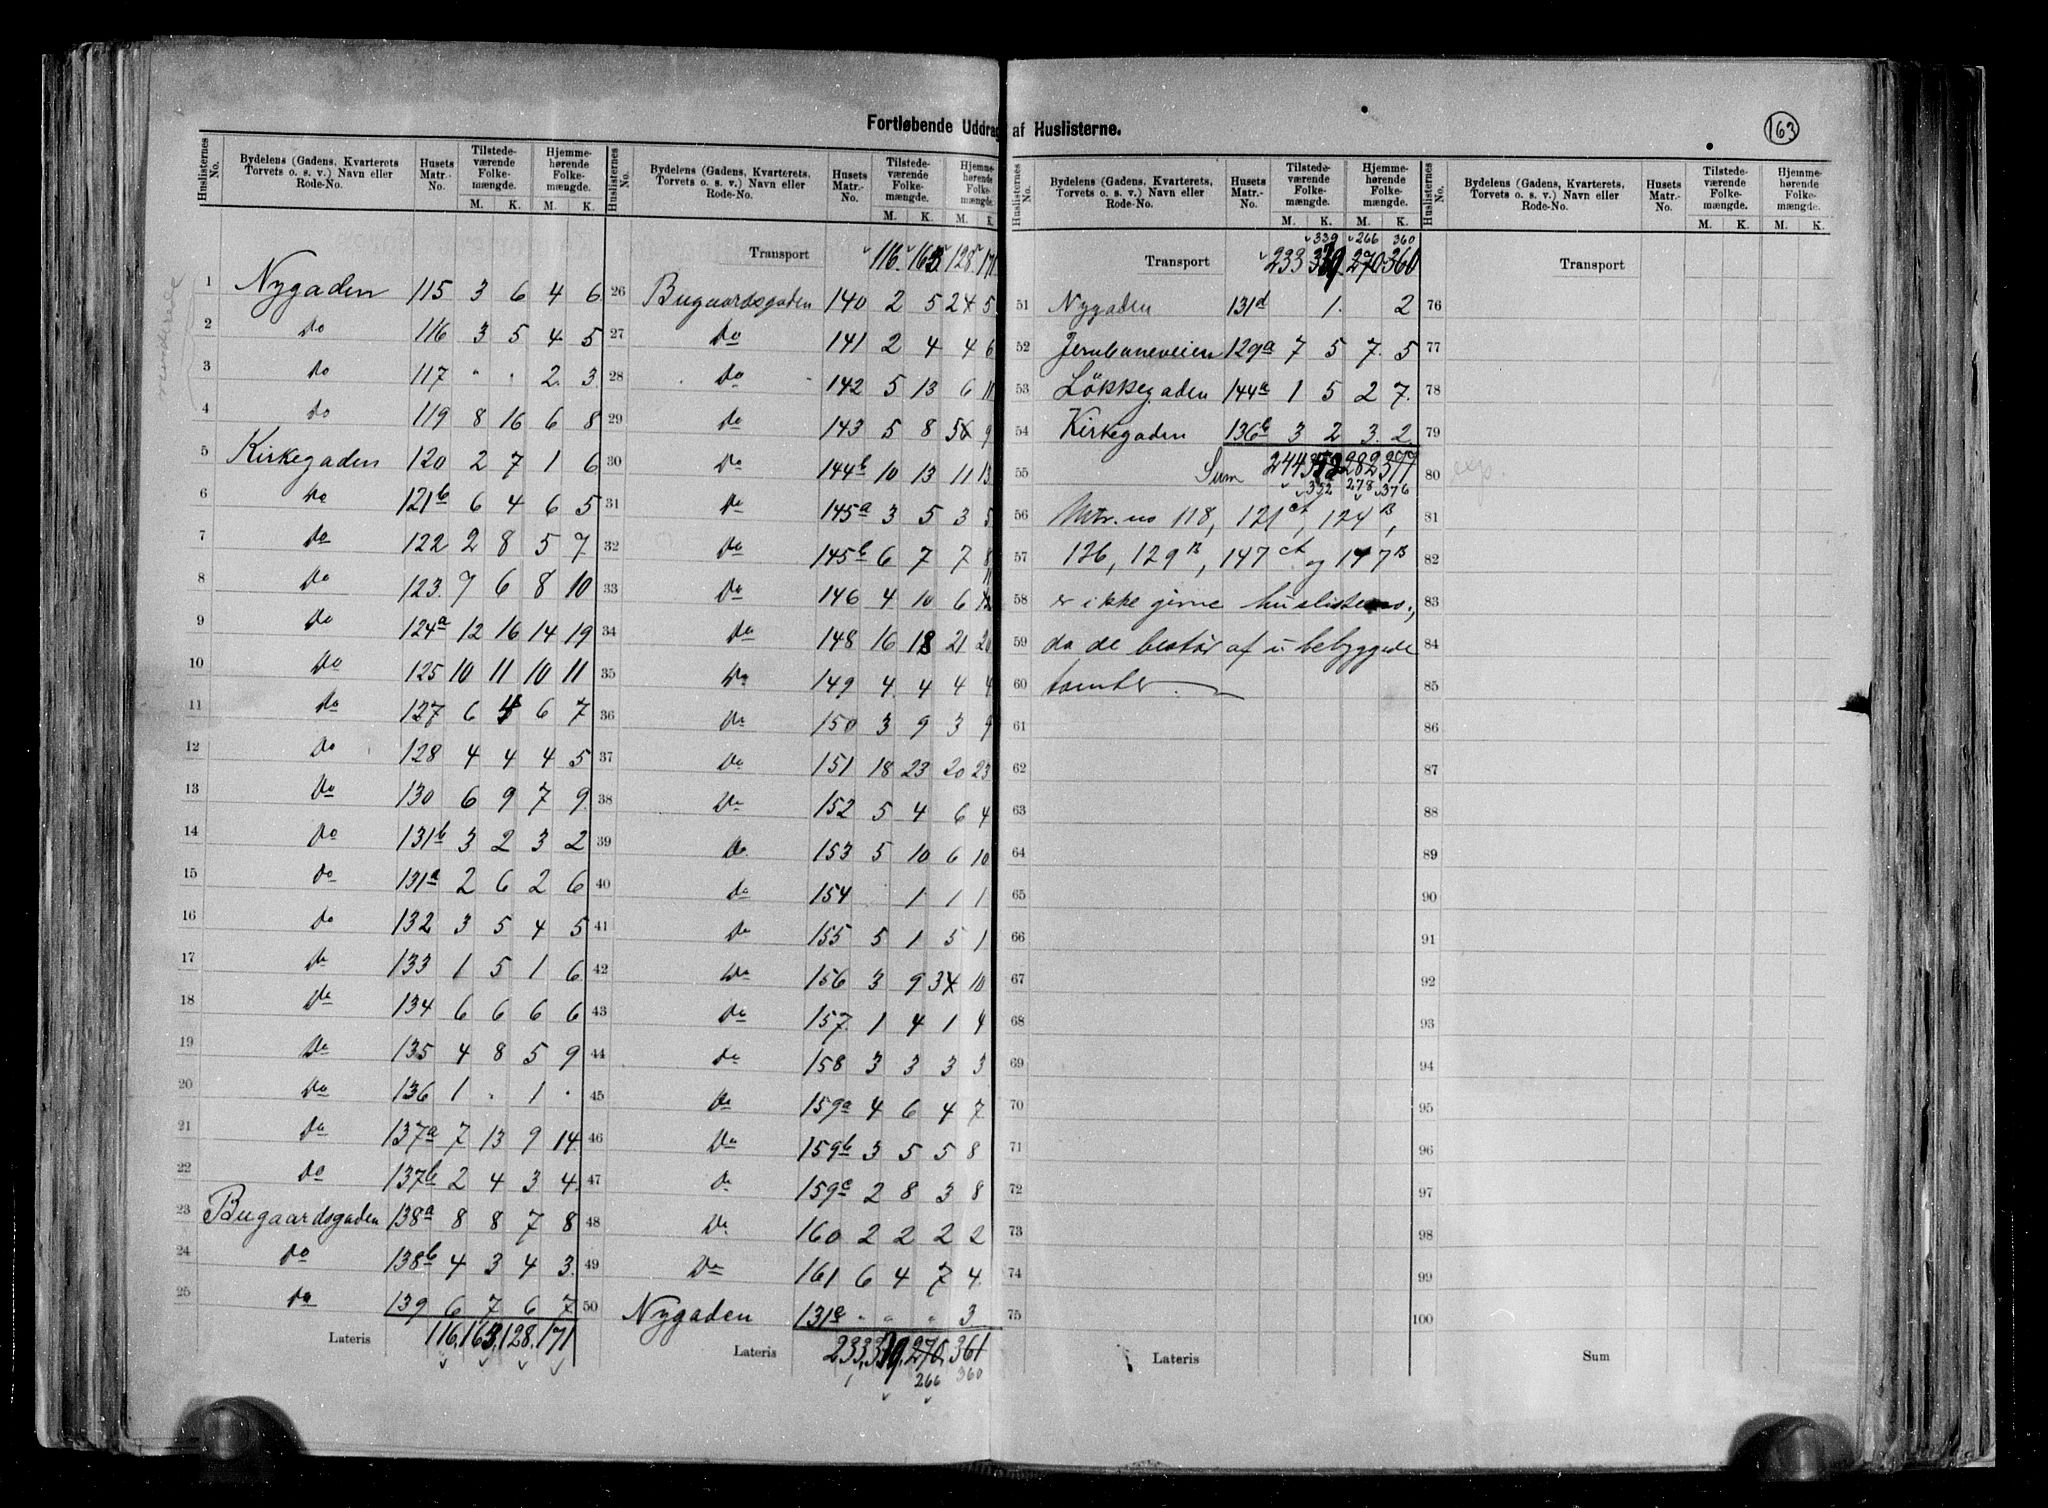 163
Fortløbende Uddrag af Huslisterne.
Huslisternes No. Bydelens (Gadens, Kvarterets Torvets o. s. v.) Navn eller Rode-No. Husets Matr.-No. Tilstedeværende Folkemængde. M. K. Hjemmehørende Folkemængde. M. K.
1 Nygaden 115 3 6 4 6
2 Do 116 3 5 4 5
3 Do 117 " " 2 3
4 Do 119 8 16 6 8
5 Kirkegaden 120 2 7 1 6
6 Do 121b 6 4 6 5
7 Do 122 2 8 5 7
8 Do 123 7 6 8 10
9 Do 124a 12 16 14 19
10 Do 125 10 11 10 11
11 Do 127 6 4 6 7
12 Do 128 4 4 4 5
13 Do 130 6 9 7 9
14 Do 131b 3 2 3 2
15 Do 131a 2 6 2 6
16 Do 132 3 5 4 5
17 Do 133 1 5 1 6
18 Do 134 6 6 6 6
19 Do 135 4 8 5 9
20 Do 136 1 . 1 .
21 Do 137a 7 13 9 14
22 Do 137b 2 4 3 4
23 Bugaardsgaden 138a 8 8 7 8
24 Do 138b 4 3 4 3
25 Do 139 6 7 6 7
Lateris 116 163 128 171
Huslisternes No. Bydelens (Gadens, Kvarterets, Torvets o. s. v.) Navn eller Rode-No. Husets Matr.-No. Tilstedeværende Folkemængde. M. K. Hjemmehørende Folkemængde. M. K.
Transport 116 163 128 171
26 Bugaardsgaden 140 2 5 2 5
27 Do 141 2 4 4 6
28 Do 142 5 13 6 11
29 Do 143 5 8 5 9
30 Do 144b 10 13 11 13
31 Do 145a 3 5 3 5
32 Do 145b 6 7 7 8
33 Do 146 4 10 6 11
34 Do 148 16 18 21 20
35 Do 149 4 4 4 4
36 Do 150 3 9 3 9
37 Do 151 18 23 20 23
38 Do 152 5 4 6 4
39 Do 153 5 10 6 10
40 Do 154 1 1 1
41 Do 155 5 1 5 1
42 Do 156 3 9 3 10
43 Do 157 1 4 1 4
44 Do 158 3 3 3 3
45 Do 159a 4 6 4 7
46 Do 159b 3 5 5 8
47 Do 159c 2 8 3 8
48 Do 160 2 2 2 2
49 Do 161 6 4 7 4
50 Nygaden 131c " " " 3
Lateris 233 339 270 361
266 360
Huslisternes No. Bydelens (Gadens, Kvarterets, Torvets o. s. v.) Navn eller Rode-No. Husets Matr.-No. Tilstedeværende Folkemængde. M. K. Hjemmehørende Folkemængde. M. K.
339 266 360
Transport 233 339 270 360
51 Nygaden 131d 1 2
52 Jernbaneveien 129a 7 5 7 5
53 Løkkegaden 144a 1 5 2 7
54 Kirkegaden 136b 3 2 3 2
55 Sum 244 352 282 377
352 278 376
56 Mtr.no 118, 121A, 124B,
57 126, 129B, 147A og 147B
58 er ikke givne huslisteno.,
59 da de består af ubebyggede
60 tomter.
61
62
63
64
65
66
67
68
69
70
71
72
73
74
75
Lateris
Huslisternes No. Bydelens (Gadens, Kvarterets, Torvets o. s. v.) Navn eller Rode-No. Husets Matr.-No. Tilstedeværende Folkemængde. M. K. Hjemmehørende Folkemængde. M. K.
Transport
76
77
78
79
80
81
82
83
84
85
86
87
88
89
90
91
92
93
94
95
96
97
98
99
100
Sum